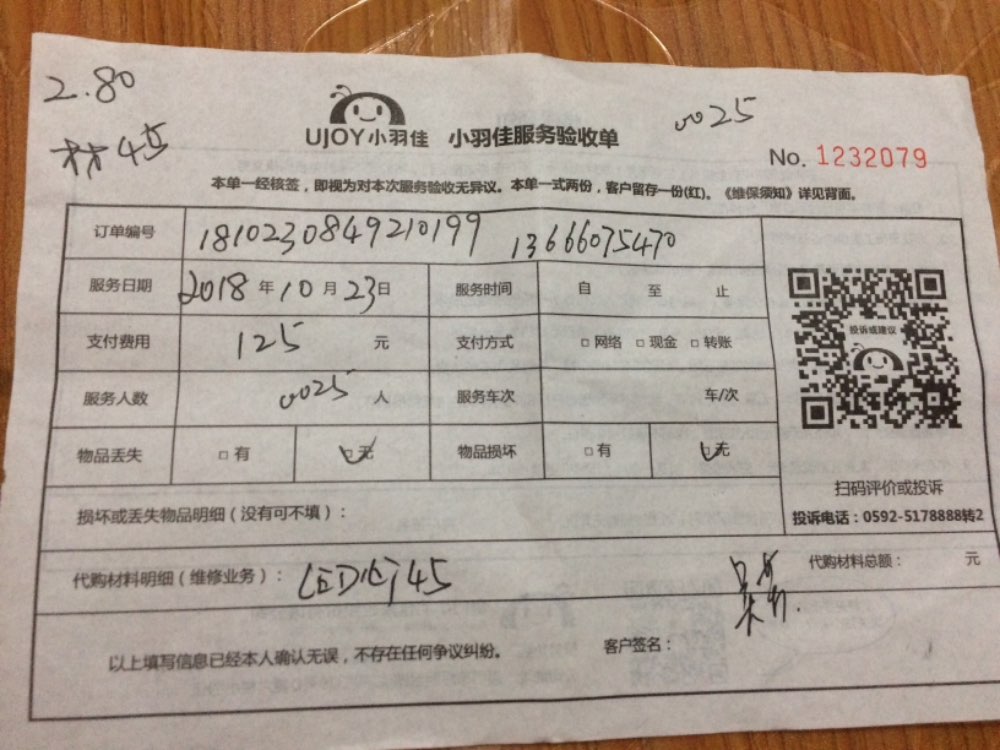 2.80
材45
UJOY小羽佳 小羽佳服务验收单
0025
No. 1232079
本单一经核签，即视为对本次服务验收无异议。本单一式两份，客户留存一份(红)。《维保须知》详见背面。
订单编号 181023084921019​9 13666075470
服务日期 2018年10月23日 服务时间 自 至 止
支付费用 125 元 支付方式 □网络 □现金 □转账
服务人数 0025 人 服务车次 车/次
物品丢失 □有 □无 物品损坏 □有 □无
投诉或建议
扫码评价或投诉
投诉电话：0592-5178888转2
损坏或丢失物品明细（没有可不填）：
代购材料明细（维修业务）： LED灯45 代购材料总额： 元
以上填写信息已经本人确认无误，不存在任何争议纠纷。 客户签名：